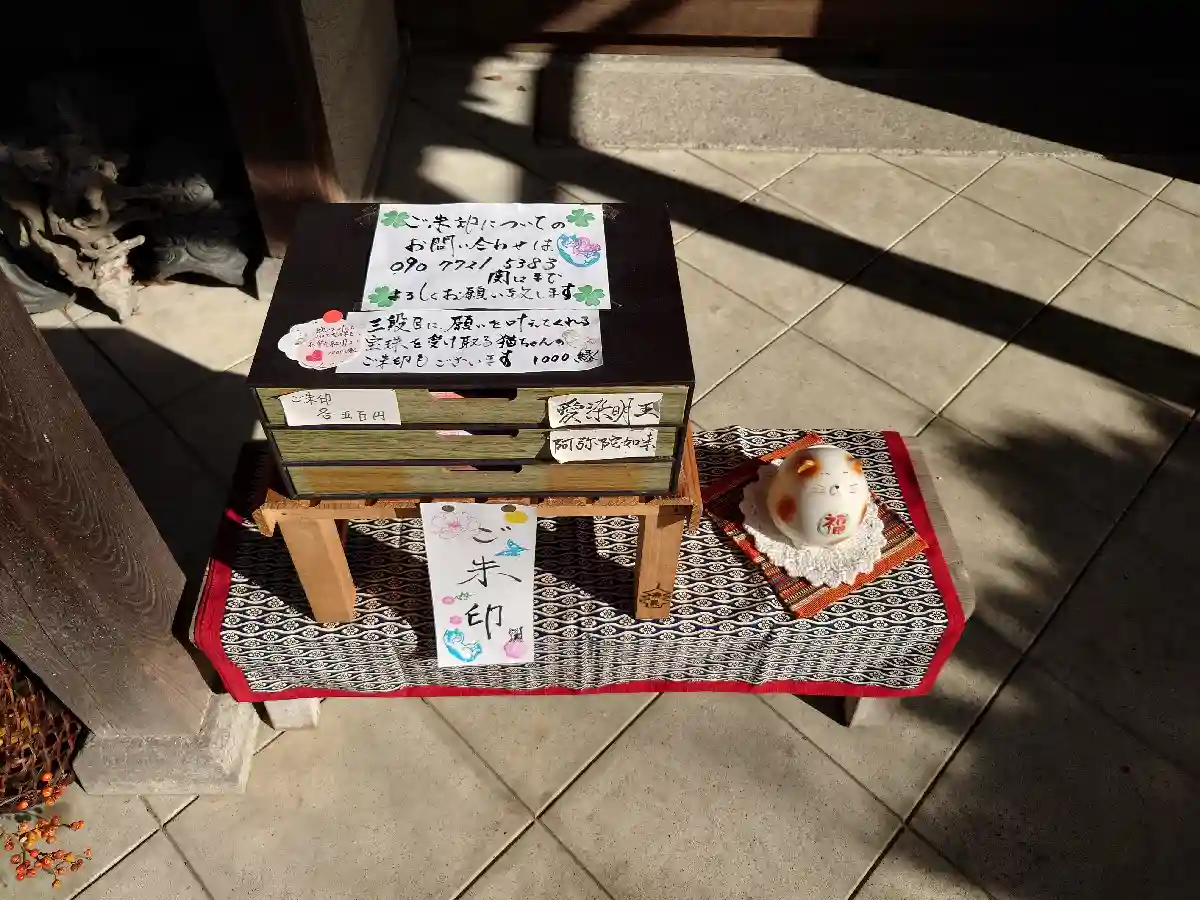 ご朱印についての
お問い合わせは
090 7721 5383
関口まで
よろしくお願い致します
三段目に、願いを叶えてくれる
宝珠を受け取る猫ちゃんの
ご朱印もございます 1000
ご朱印
各五百円
愛染明王
阿弥陀如来
ご朱印
福